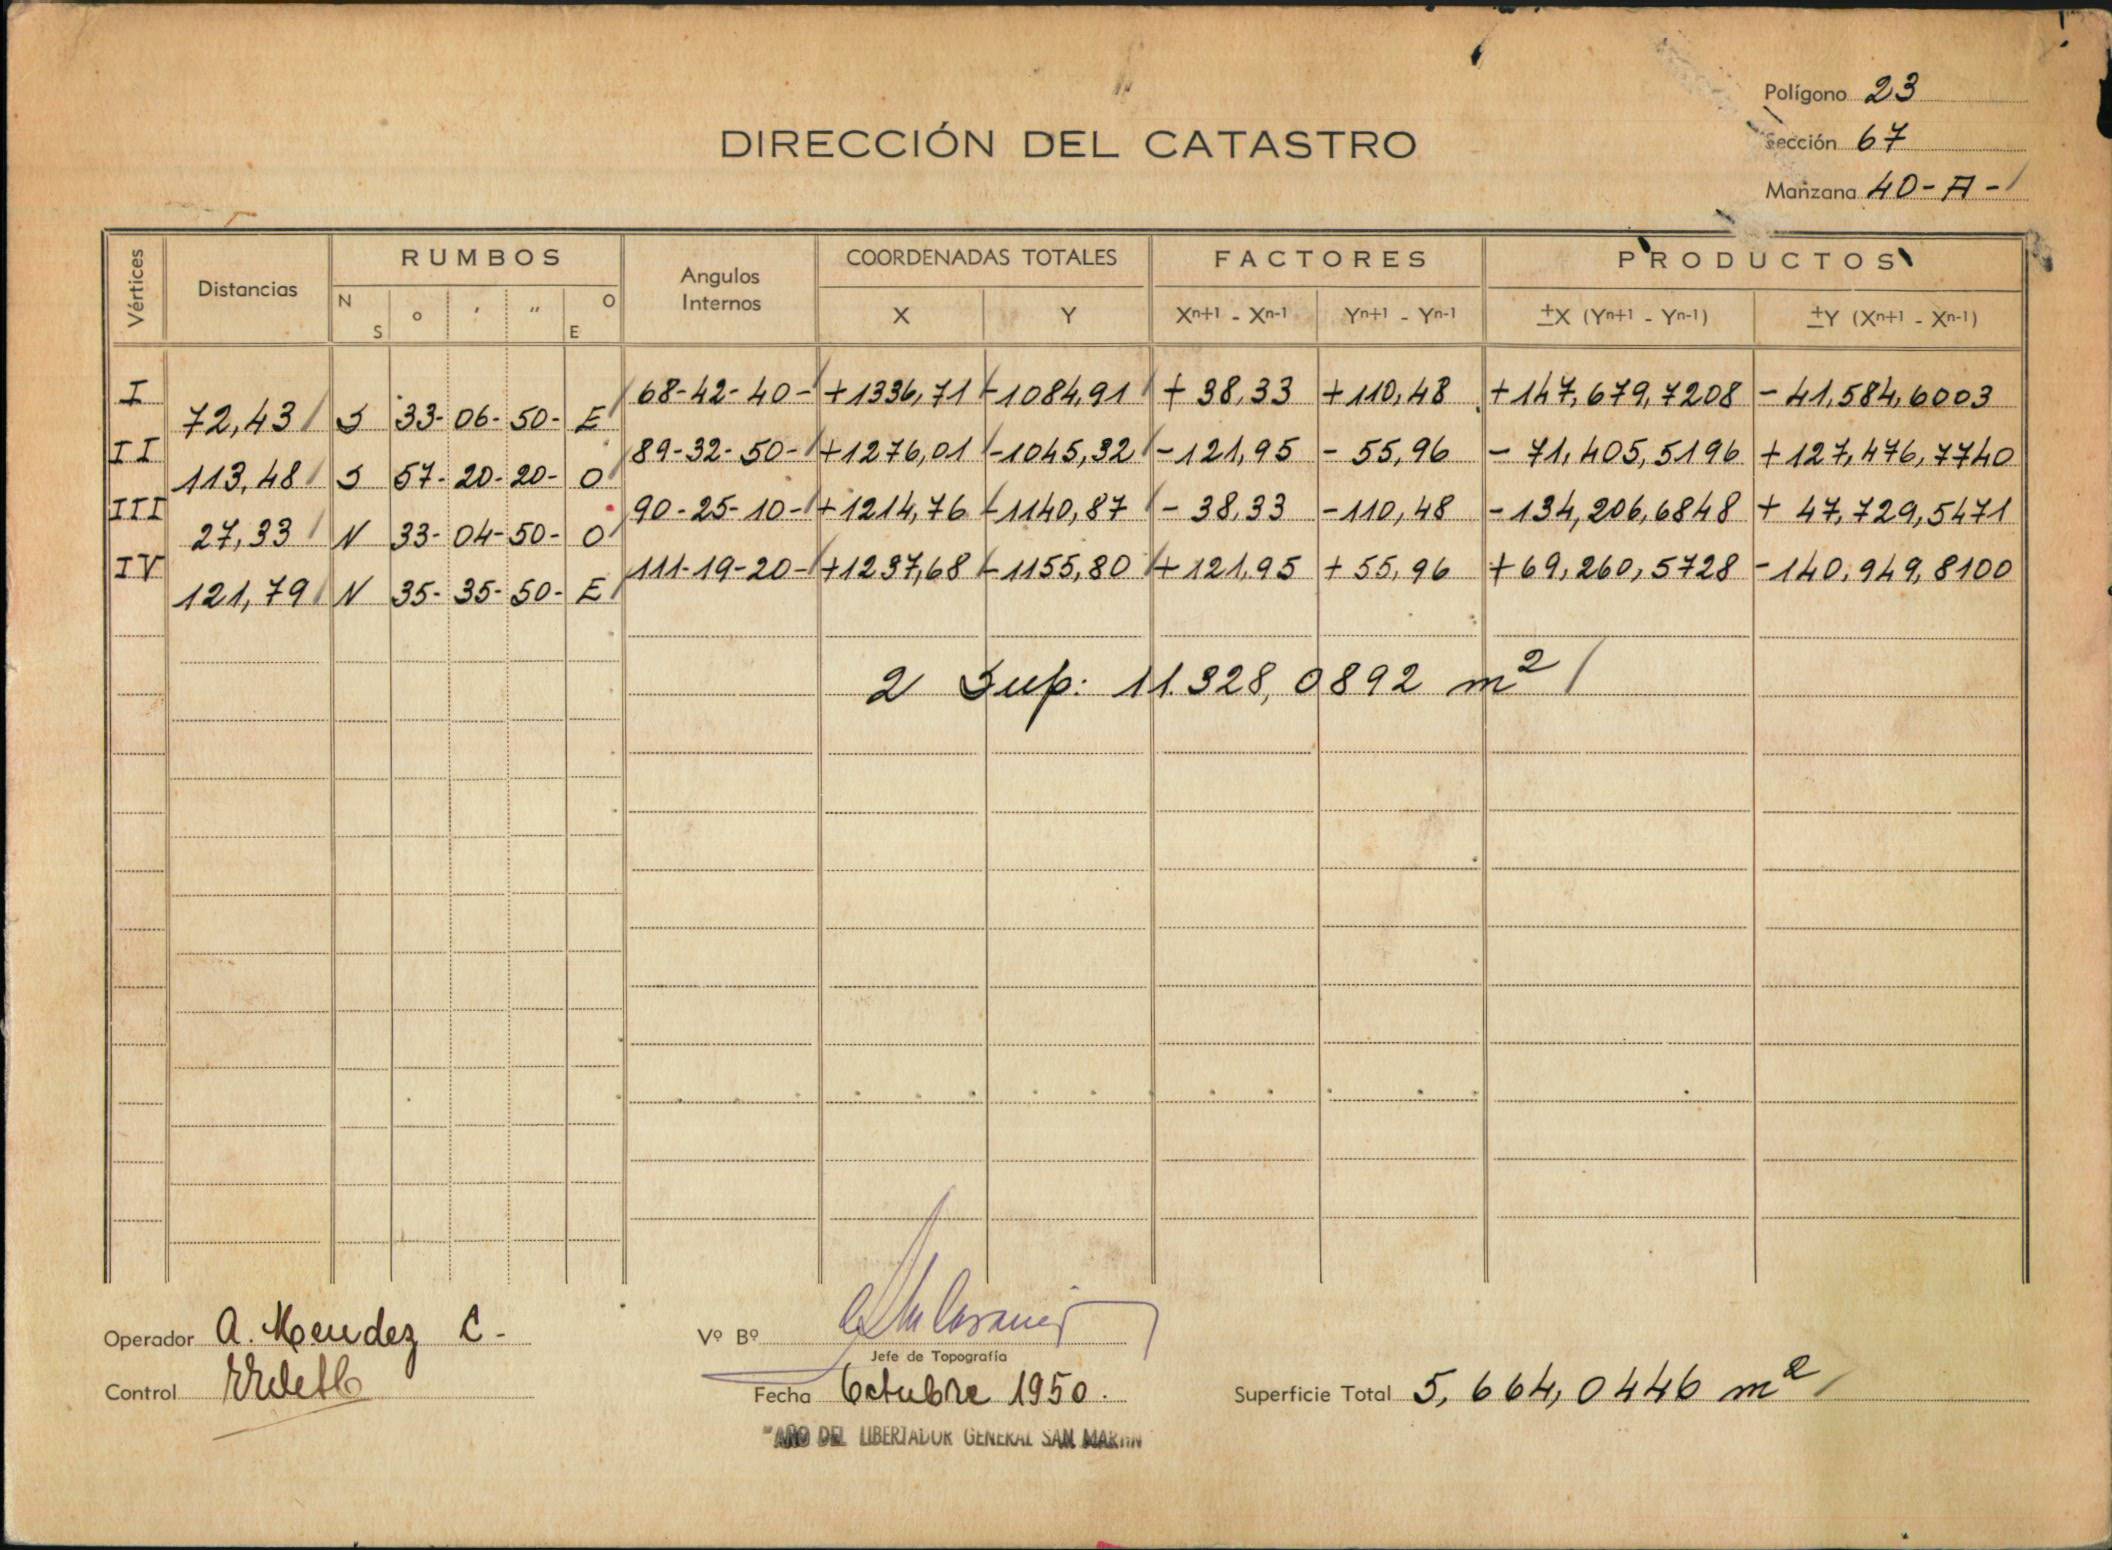 Polígono 23
DIRECCIÓN DEL CATASTRO
Sección 67
Manzana 40-A-
Vértices Distancias RUMBOS Angulos Internos COORDENADAS TOTALES FACTORES PRODUCTOS
N S o ' " O E X Y Xn+1 - Xn-1 Yn+1 - Yn-1 ±X (Yn+1 - Yn-1) ±Y (Xn+1 - Xn-1)
I 68-42-40- +1336,71 -1084,91 + 38,33 +110,48 +147,679,7208 - 41,584,6003
72,43 S 33- 06- 50- E
II 89-32-50- +1276,01 -1045,32 -121,95 - 55,96 - 71,405,5196 +127,476,7740
113,48 S 57- 20- 20- O
III 90-25-10- +1214,76 -1140,87 - 38,33 -110,48 -134,206,6848 + 47,729,5471
27,33 N 33- 04- 50- O
IV 111-19-20- +1237,68 -1155,80 +121,95 + 55,96 +69,260,5728 -140,949,8100
121,79 N 35- 35- 50- E
2 Sup: 11.328,0892 m²
Operador A. Mendez C-
Vº Bº
Jefe de Topografía
Control
Fecha Octubre 1950.
Superficie Total 5,664,0446 m²
"AÑO DEL LIBERTADOR GENERAL SAN MARTIN